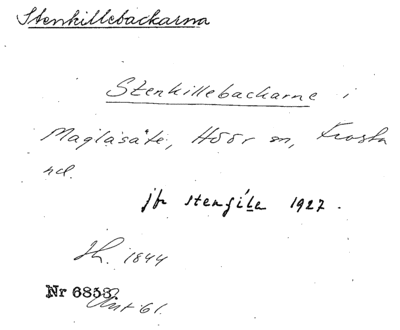 Stenkillebackarna
Stenkillebackarne i
Maglasäte, Höör sn, Frosta
hd.
jfr stengila 1927.
Sk. 1844
Nr 6853.
Ant 61.